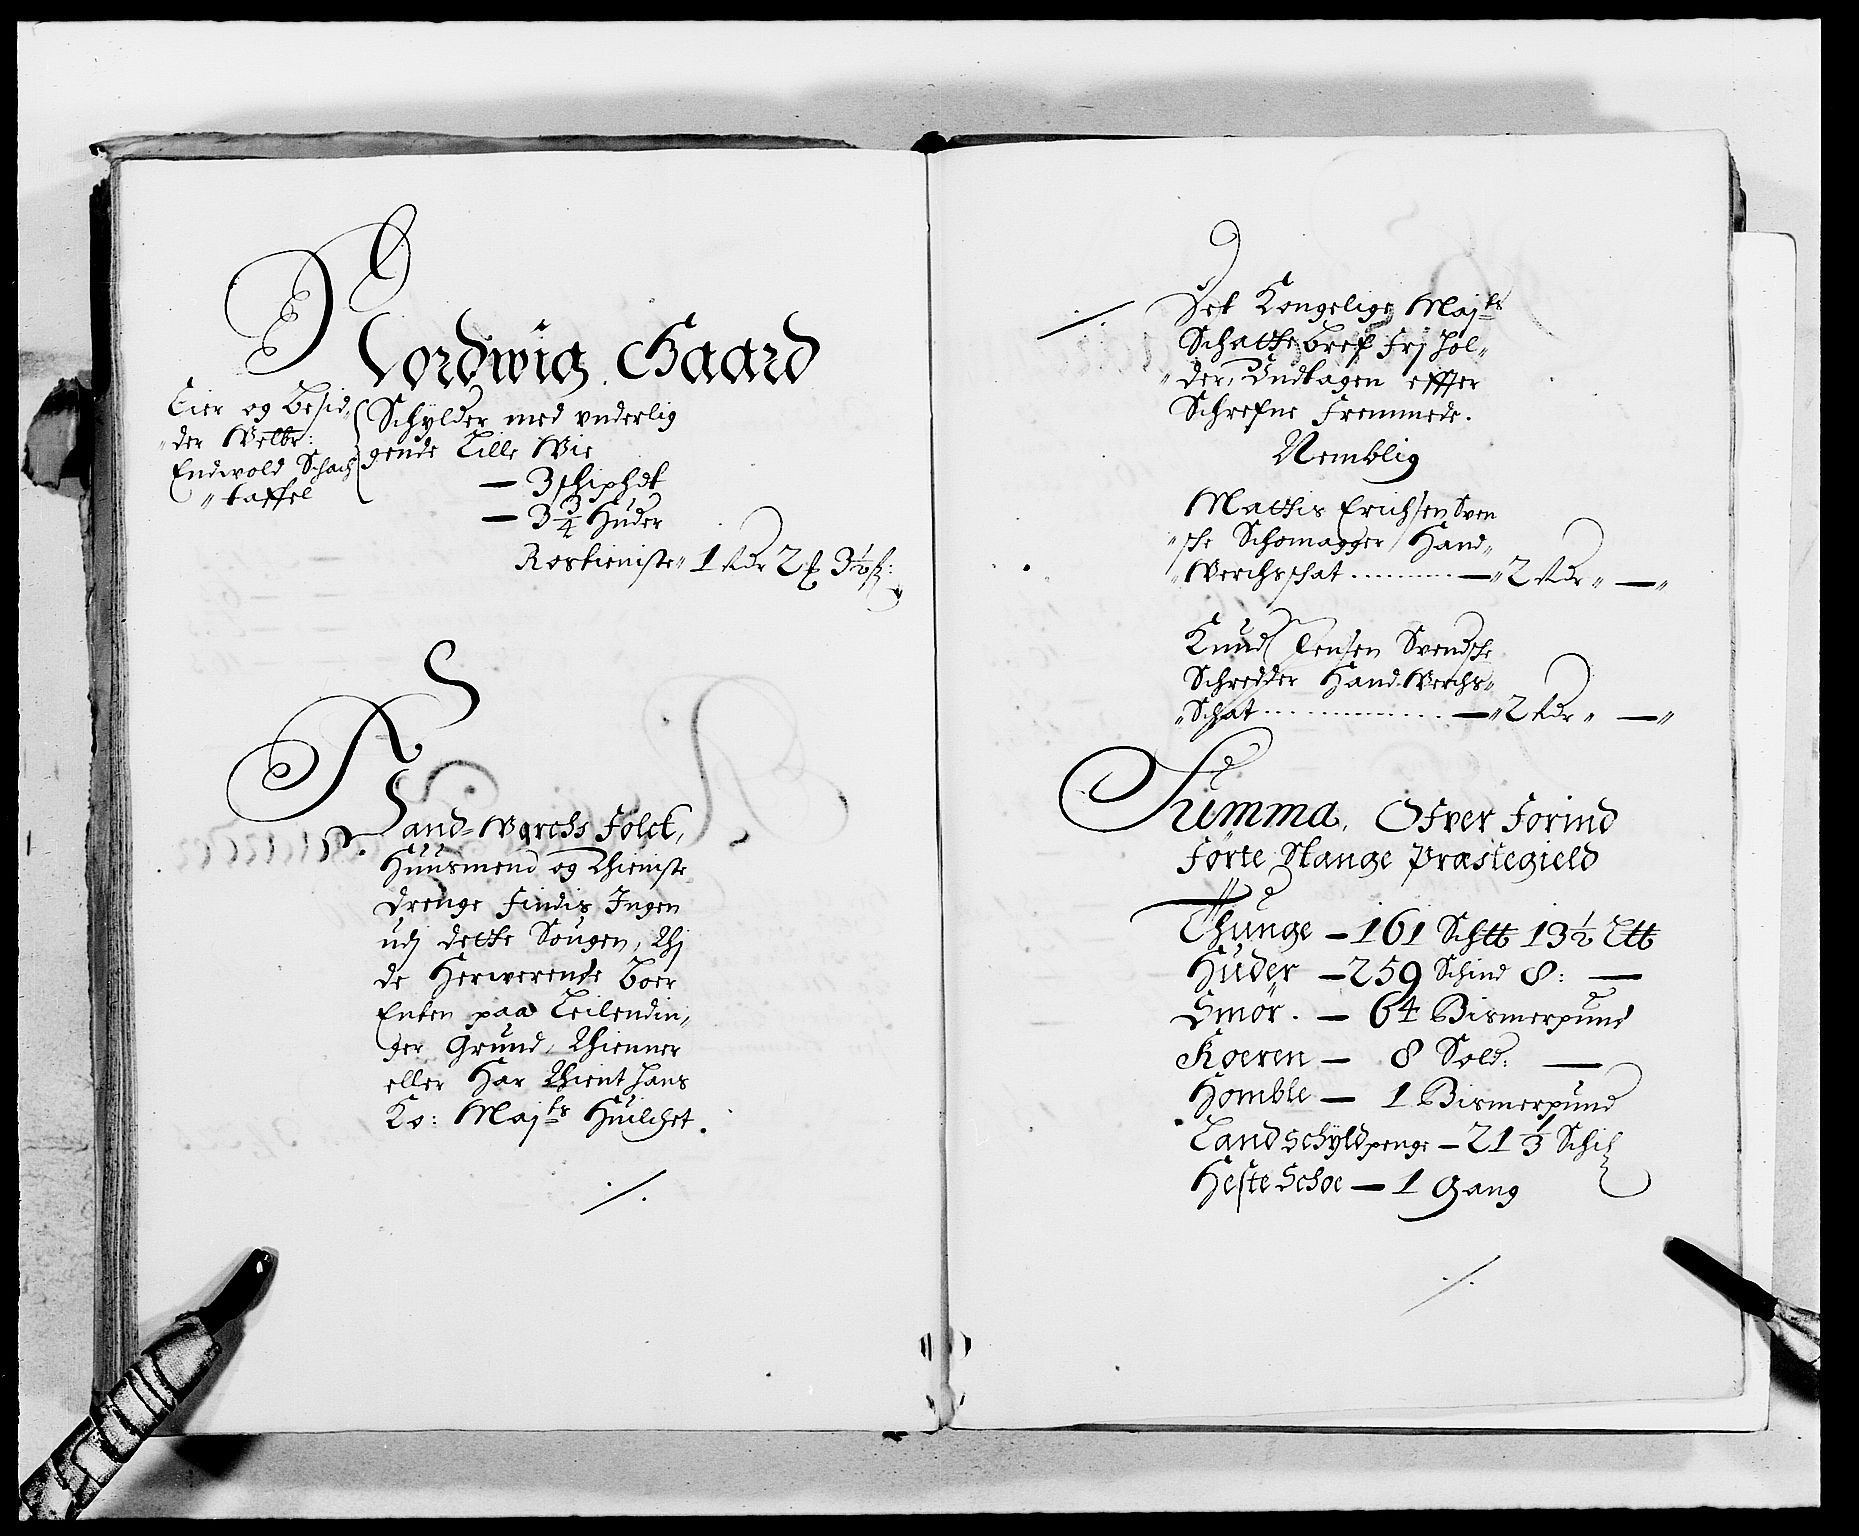 Nordwig Gaard
Eier og besid„
„der Welbr:
Endwold Schach
„taffel
Schylder med vnderlig
gende Lille Wie
— 3 schiphdt
— 3 3/4 Huder
Rostieniste„ 1 Rdr 2 ₰ 3½ ß:
Hand-Werchs Folck,
Huusmend og Thieniste
drenge Findis Ingen
udj dette Sougen, Thj
de Herwerende boer
Enten paa Leilendin„
ger Grund, Thienner
eller Har Thient hans
Ko: Majts Huilchet.
Det Kongelige Majts
Schatte bref Frj hol„
„der, Undtagen effter
Schrefne Fremmede.
Nemblig
Mattis Erichsen Sven
„sche Schomagger Hand„
„Werchsschat — „2 Rdr „ — „
Knud Jensen Svendsche
Schredder Hand Werchs„
„Schat — „2 Rdr „ — „
Summa. Ofver Forind
Førte Stange Præstegield
Thunge — 161 Schtt 13½ Ltt
Huder — 259 Schind 8: —
Smør. — 64 Bismerpund
Koeren — 8 Sold: —
Homble — 1 Bismerpund
Landschyldpenge — 21 1/3 Schil
Heste Schoe — 1 Gang